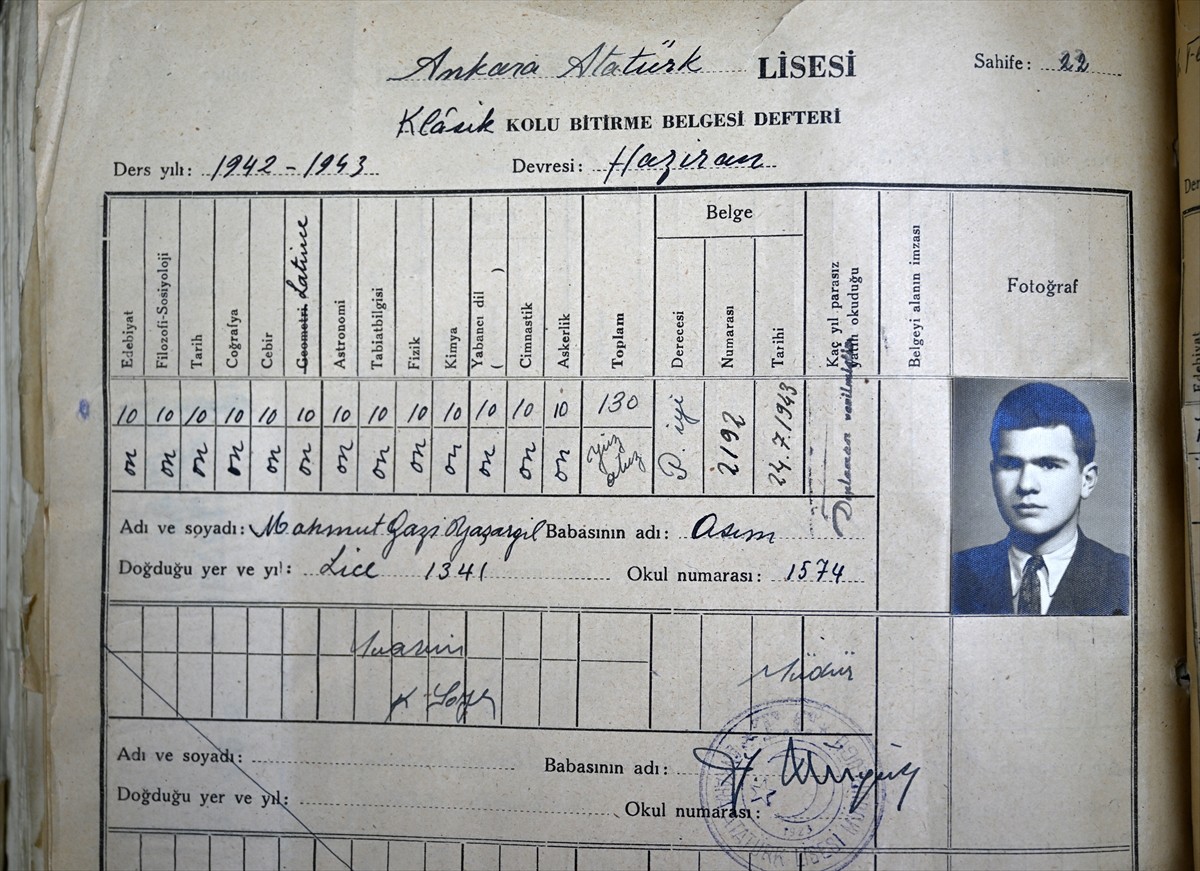 Ankara Atatürk LİSESİ
Sahife: 22
Klâsik KOLU BİTİRME BELGESİ DEFTERİ
Ders yılı: 1942-1943 Devresi: Haziran
Edebiyat Filozofi-Sosiyoloji Tarih Coğrafya Cebir Geometri Latince Astronomi Tabiatbilgisi Fizik Kimya Yabancı dil ( ) Cimnastik Askerlik Toplam Belge Derecesi Numarası Tarihi Kaç yıl parasız yatılı okuduğu Belgeyi alanın imzası Fotoğraf
10 10 10 10 10 10 10 10 10 10 10 10 10 130 P. iyi 2192 24.7.1943
on on on on on on on on on on on on on yüz otuz
Diploması verilmiştir
Adı ve soyadı: Mahmut Gazi Yaşargil Babasının adı: Asım
Doğduğu yer ve yıl: Lice 1341 Okul numarası: 1574
Muavin Müdür
Adı ve soyadı: Babasının adı:
Doğduğu yer ve yıl: Okul numarası:
1923
ATATÜRK LİSESİ